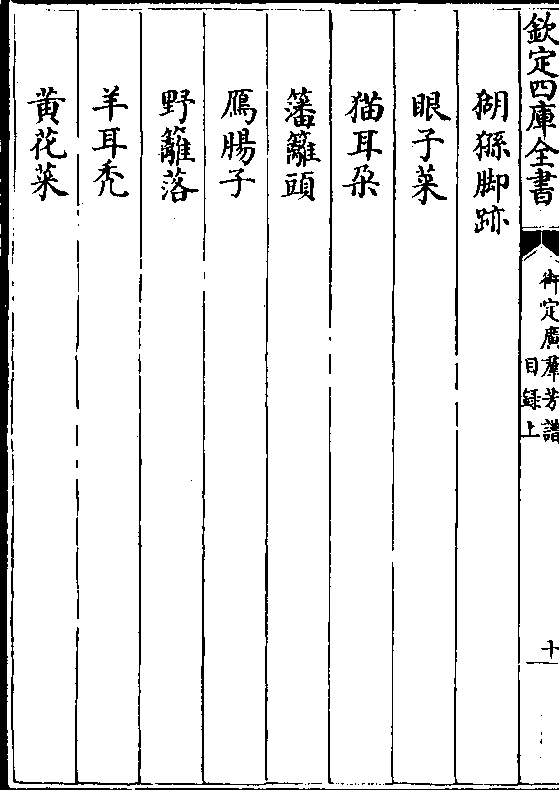 欽定四庫全書
御定廣羣芳譜
目録上
十
猢猻脚跡
眼子菜
猫耳朶
籓籬頭
鴈腸子
野籬落
羊耳禿
黄花菜